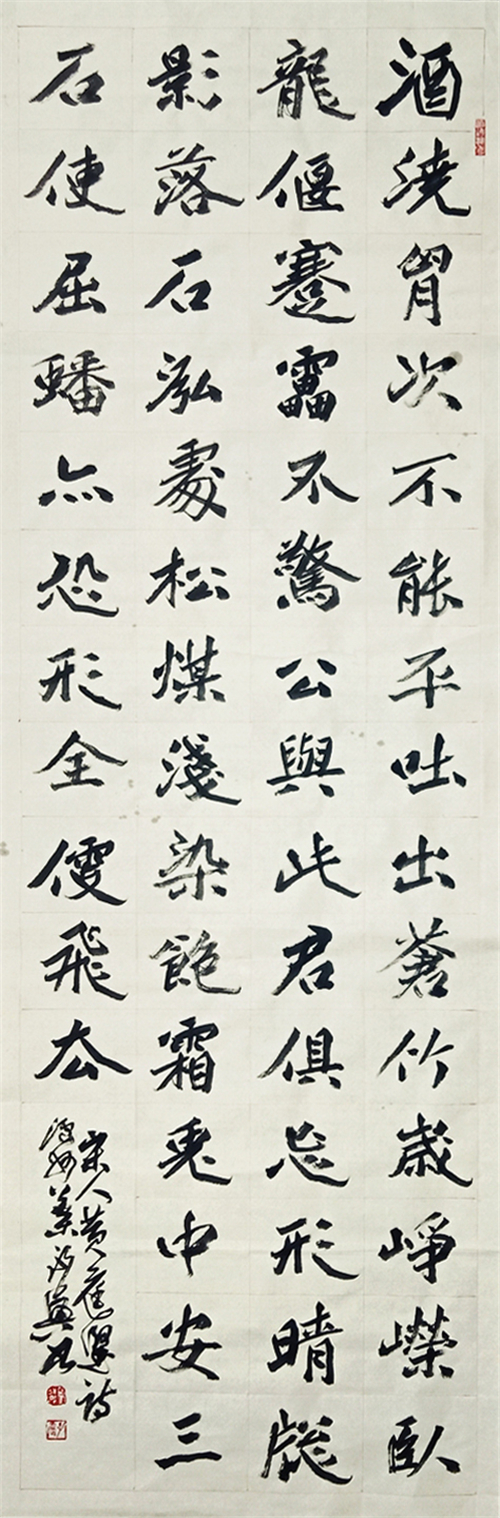 酒澆胷次不能平吐出蒼竹歲崢嶸臥
龍偃蹇靁不驚公與此君俱忘形晴牕
影落石泓處松煤淺染飽霜兎中安三
石使屈蟠亦恐形全便飛去
宋人黄庭堅詩